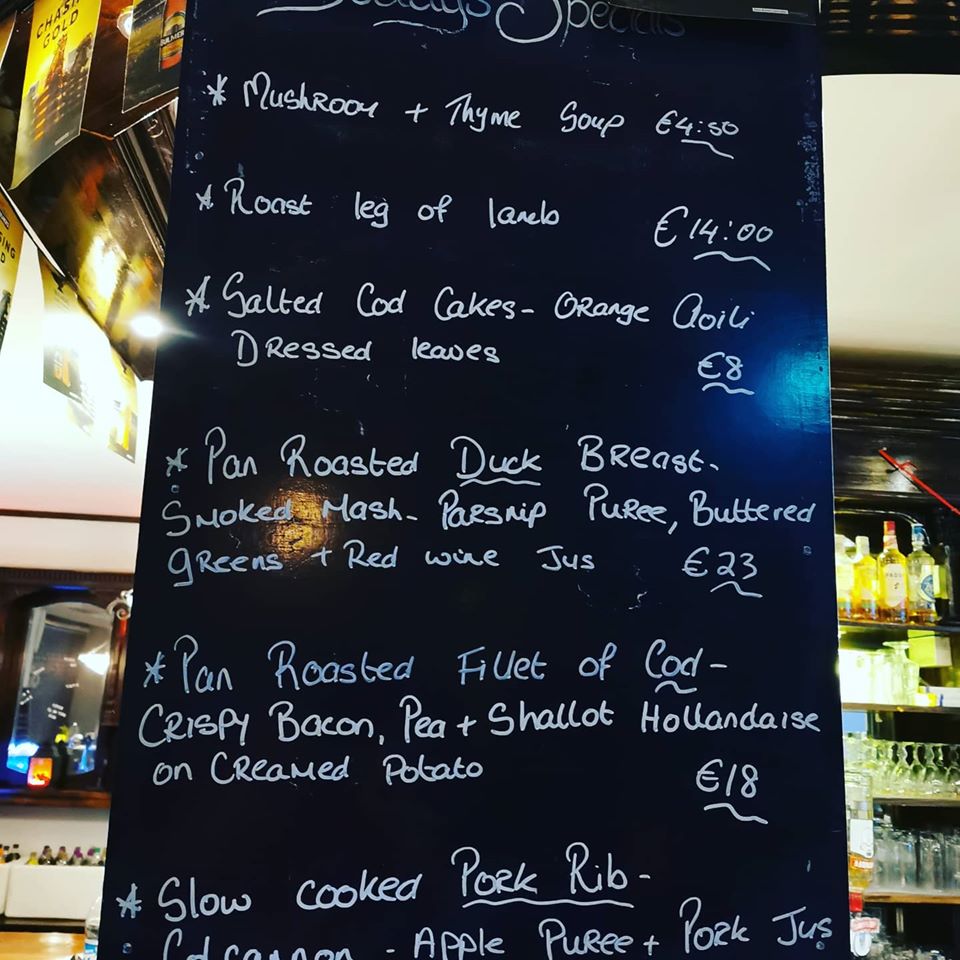 CHASING GOLD
BULMERS
Specials
* Mushroom + Thyme Soup €4:50
* Roast leg of lamb €14:00
* Salted Cod Cakes - Orange Aoili
Dressed leaves €8
* Pan Roasted Duck Breast -
Smoked Mash - Parsnip Puree, Buttered
greens + Red wine Jus €23
* Pan Roasted Fillet of Cod -
Crispy Bacon, Pea + Shallot Hollandaise
on Creamed Potato €18
* Slow cooked Pork Rib -
Colcannon - Apple Puree + Pork Jus